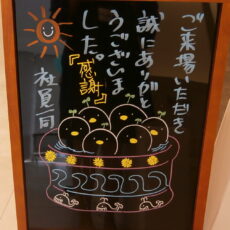 ご来場いただき
誠にありがと
うございま
した。
『感謝』
社員一同